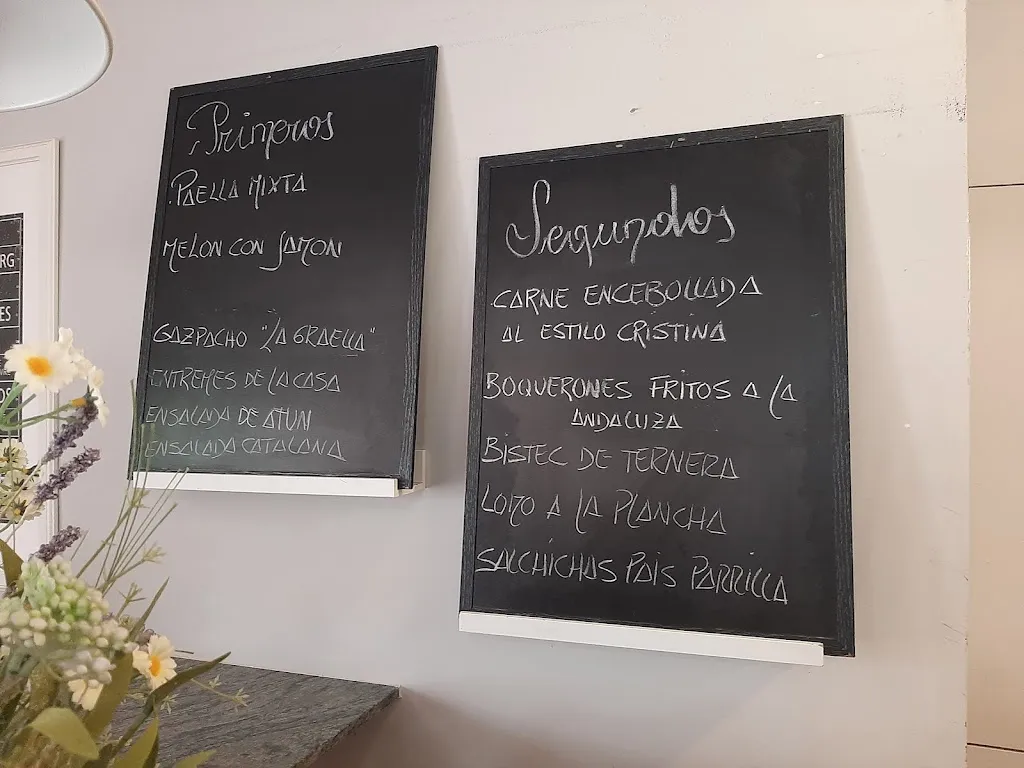 Primeros
PAELLA MIXTA
MELON CON JAMON
GAZPACHO "LA GRAELLA"
ENTREMES DE LA CASA
ENSALADA DE ATUN
ENSALADA CATALANA
Segundos
CARNE ENCEBOLLADA
AL ESTILO CRISTINA
BOQUERONES FRITOS A LA
ANDALUZA
BISTEC DE TERNERA
LOMO A LA PLANCHA
SALCHICHAS PAIS PARRILLA